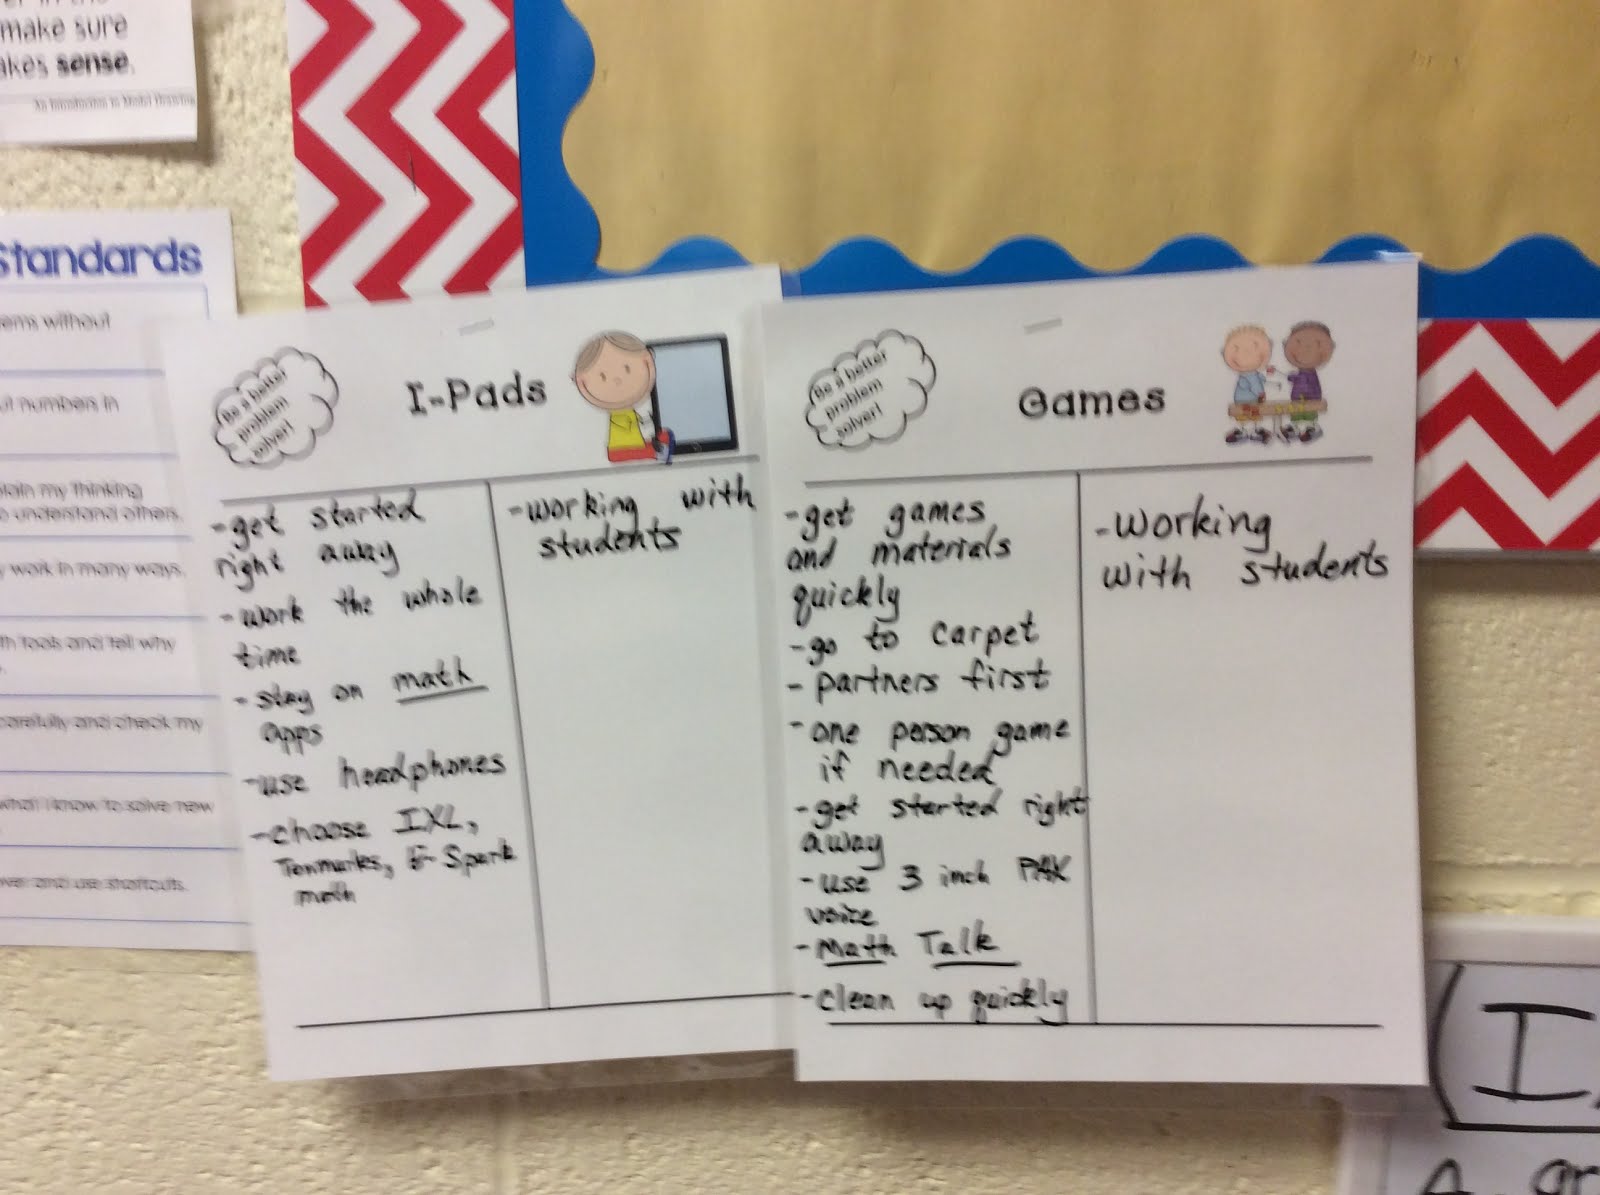 make sure
akes sense.
An Introduction to Model Drawing
Standards
ems without
ut numbers in
plain my thinking
o understand others.
y work in many ways.
th tools and tell why
carefully and check my
what I know to solve new
ver and use shortcuts.
Be a better
problem
solver!
I-Pads
-get started
right away
-work the whole
time
-stay on math
apps
-use headphones
-choose IXL,
Tenmarks, or Spark
math
-working with
students
Be a better
problem
solver!
Games
-get games
and materials
quickly
-go to carpet
-partners first
-one person game
if needed
-get started right
away
-use 3 inch PAX
voice
-Math Talk
-clean up quickly
-working
with students
(I
A gr